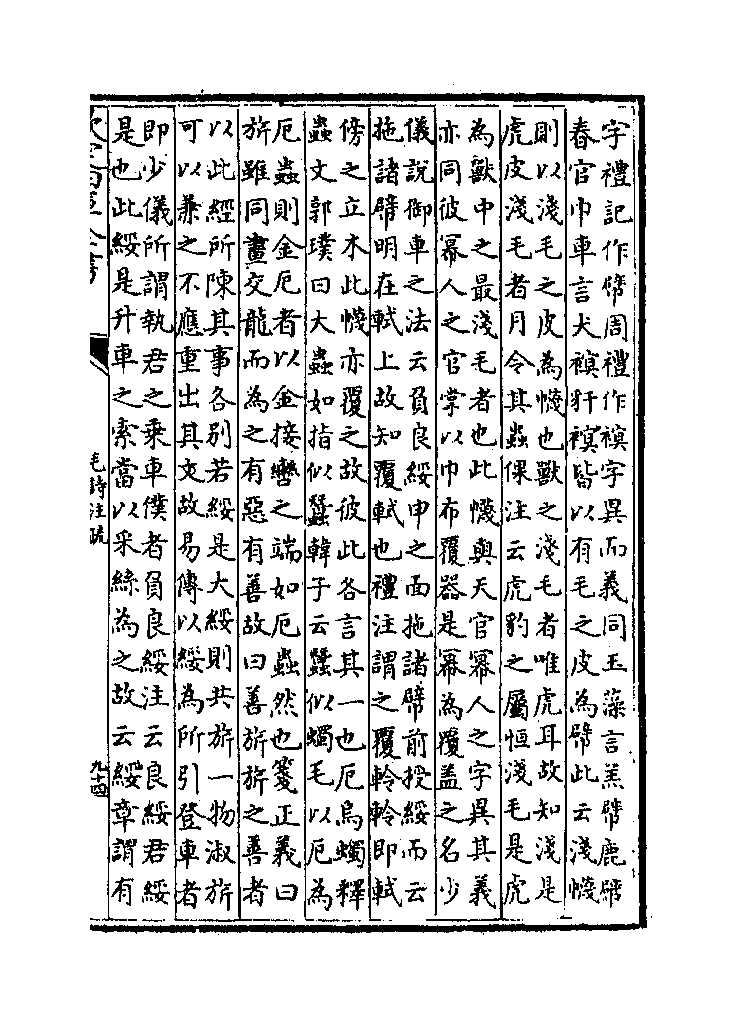 字禮記作幦周禮作𧜀字異而義同玉藻言羔幦鹿幦
春官巾車言犬𧜀豻𧜀皆以有毛之皮為幦此云淺幭
則以淺毛之皮為幭也獸之淺毛者唯虎耳故知淺是
虎皮淺毛者月令其蟲倮注云虎豹之屬恒淺毛是虎
為獸中之最淺毛者也此幭與天官冪人之字異其義
亦同彼冪人之官掌以巾布覆器是冪為覆蓋之名少
儀說御車之法云負良綏申之面拖諸幦前授綏而云
拖諸幦明在軾上故知覆軾也禮注謂之覆軨軨即軾
傍之立木此幭亦覆之故彼此各言其一也厄烏蠋釋
蟲文郭璞曰大蟲如指似蠶韓子云蠶似蠋毛以厄為
厄蟲則金厄者以金接轡之端如厄蟲然也箋正義曰
旂雖同畫交龍而為之有惡有善故曰善旂旂之善者
以此經所陳其事各别若綏是大綏則共旂一物淑旂
可以兼之不應重出其文故易傳以綏為所引登車者
即少儀所謂執君之乗車僕者負良綏注云良綏君綏
是也此綏是升車之索當以采絲為之故云綏章謂有
毛詩注疏
九十四